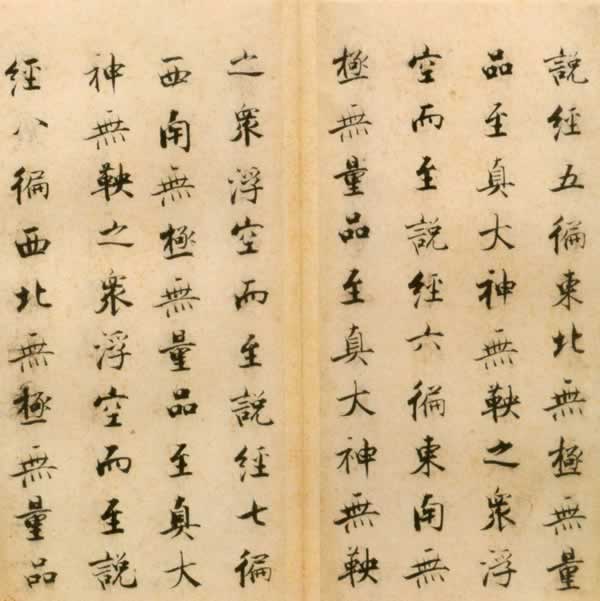 說經五徧東北無極無量
品至真大神無鞅之衆浮
空而至說經六徧東南無
極無量品至真大神無鞅
之衆浮空而至說經七徧
西南無極無量品至真大
神無鞅之衆浮空而至說
經八徧西北無極無量品